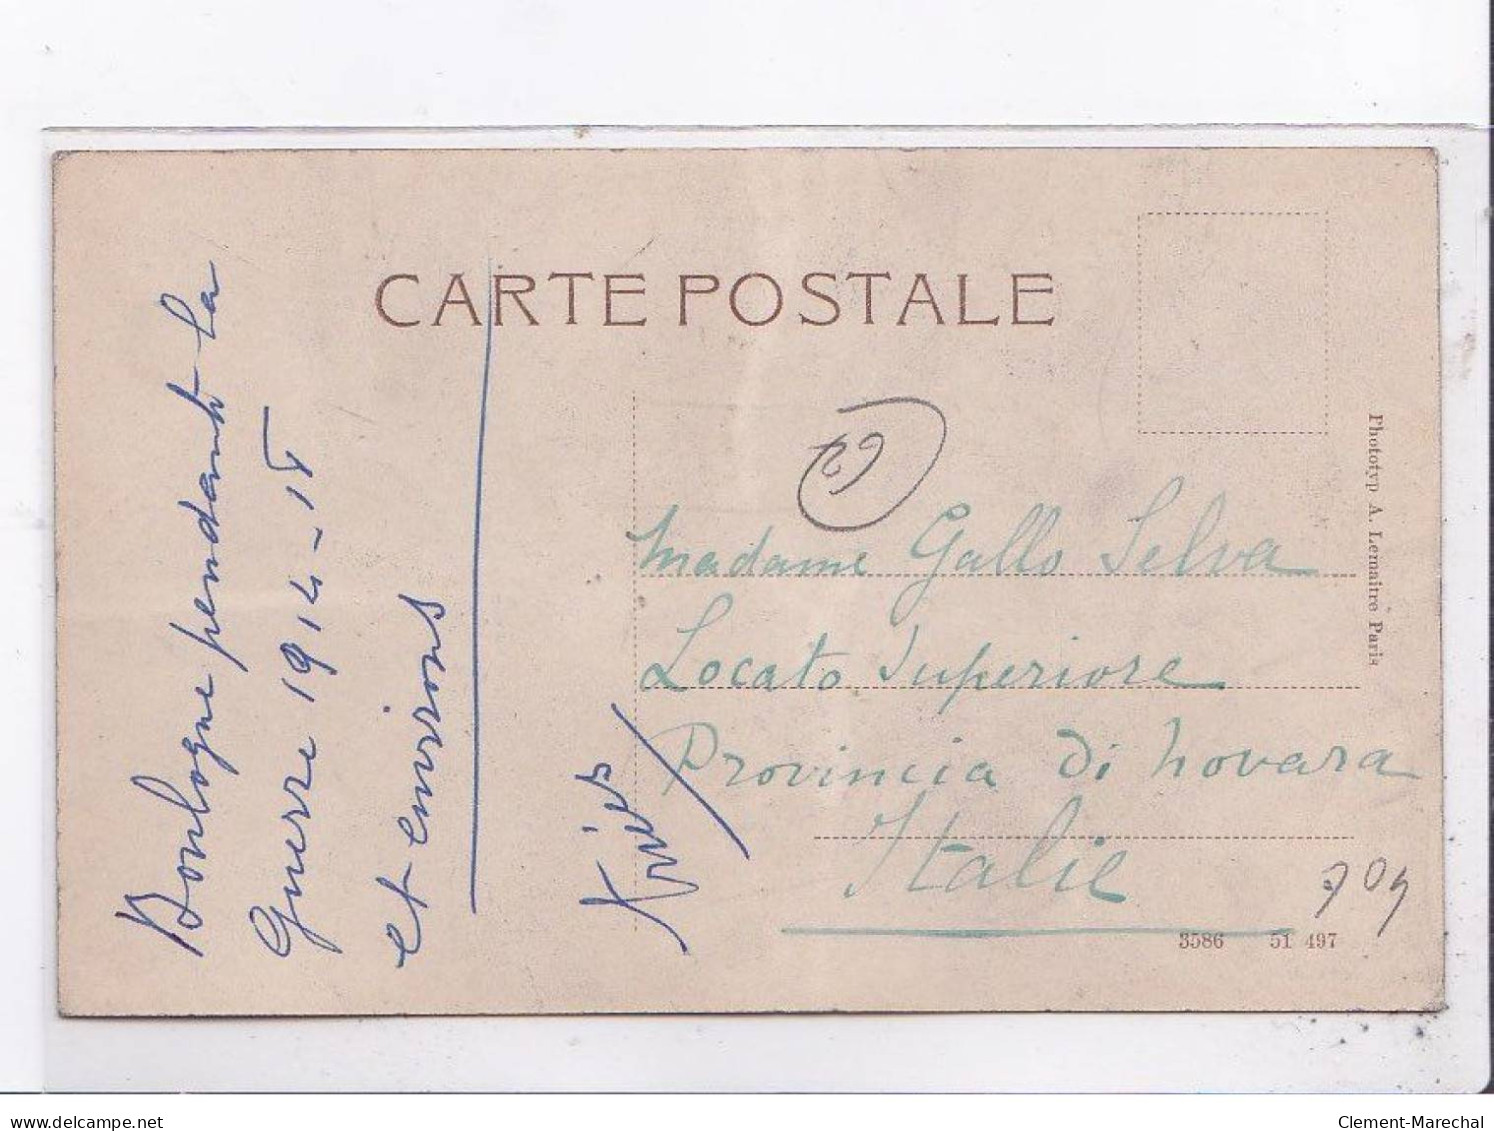 CARTE POSTALE
Boulogne pendant la
Guerre 1914-15
et environs
62
Madame Gallo Selva
Locato Superiore
Provincia di Novara
Italie
Phototyp A. Lemaitre Paris
3586 51 497
709
delcampe.net
Clement-Marechal